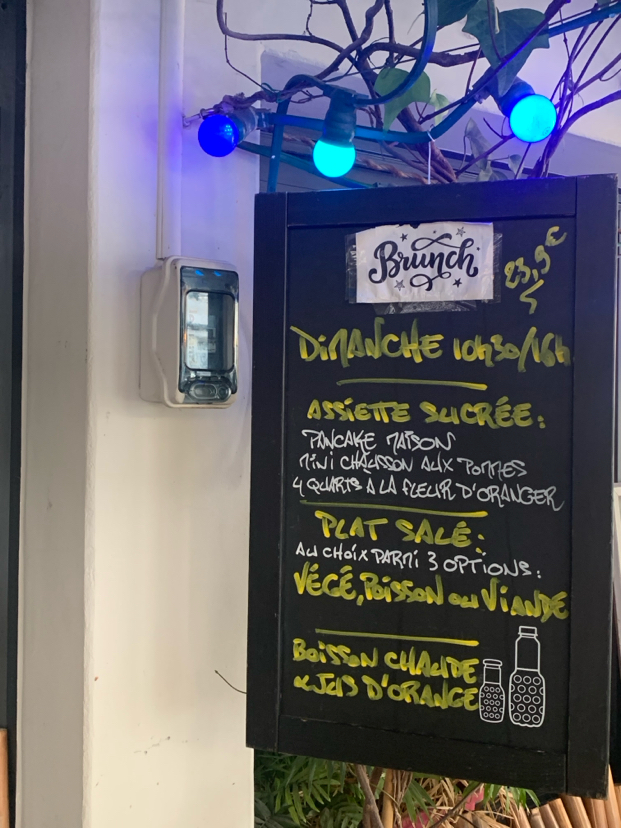 Brunch
23,9€
DIMANCHE 10h30/16h
ASSIETTE SUCRÉE:
PANCAKE MAISON
MINI CHAUSSON AUX POMMES
4 QUARTS A LA FLEUR D'ORANGER
PLAT SALÉ:
AU CHOIX PARMI 3 OPTIONS:
VÉGÉ, POISSON OU VIANDE
BOISSON CHAUDE
& JUS D'ORANGE